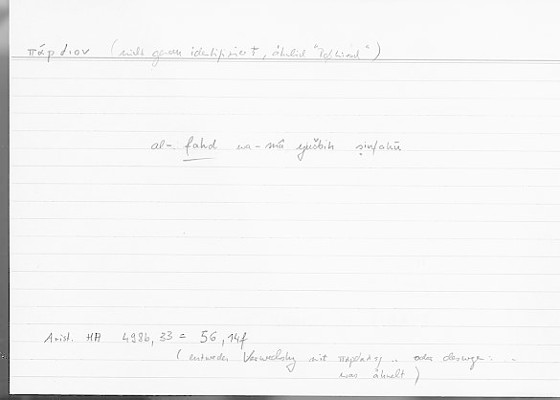 πάρδιον (nicht genau identifiziert, ähnlich " ")
al-fahd wa-mā yušbih ṣinfahū
Arist. HA 498b, 33 = 56, 14f
(entweder Verwechslg mit .. oder deswegen ..
was ähnelt)